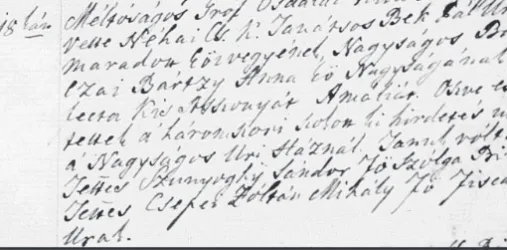 18 kán Méltóságos Gróf
Vette Néhai Cs. K. Tanátsos Bek Pál Ur
maradott Eözvegyenek, Nagyságos
czai Bártzy Anna Eö Nagyságának
Kis Asszonyát Amáliát. Öszve es
tettek a háromszori ki hirdetés
a Nagyságos Uri Háznál. Tanuk volt
Tettes Szunyoghy Sándor Fö Szolga Bi
Tettes Csefei Zóltán Mihály Fö Fisca
Urak.